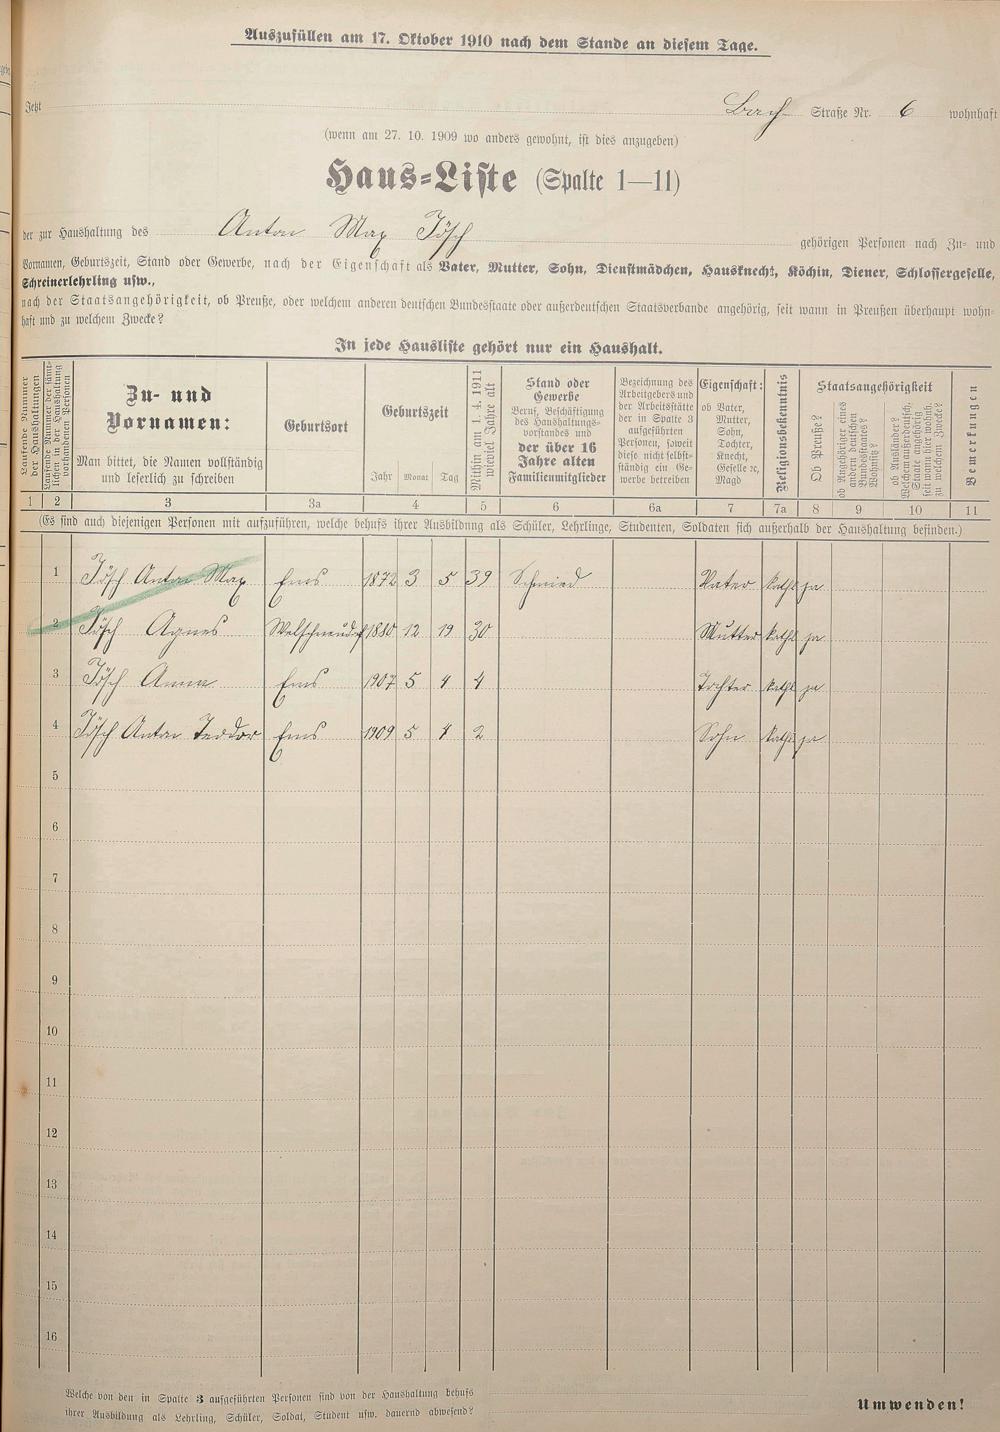 Auszufüllen am 17. Oktober 1910 nach dem Stande an diesem Tage.
Jetzt Bach Straße Nr. 6 wohnhaft
(wenn am 27. 10. 1909 wo anders gewohnt, ist dies anzugeben)
Haus-Liste (Spalte 1—11)
der zur Haushaltung des Anton Max Jösch gehörigen Personen nach Zu- und
Vornamen, Geburtszeit, Stand oder Gewerbe, nach der Eigenschaft als Vater, Mutter, Sohn, Dienstmädchen, Hausknecht, Köchin, Diener, Schlossergeselle,
Schreinerlehrling usw.,
nach der Staatsangehörigkeit, ob Preuße, oder welchem anderen deutschen Bundesstaate oder außerdeutschen Staatsverbande angehörig, seit wann in Preußen überhaupt wohn-
haft und zu welchem Zwecke?
In jede Hausliste gehört nur ein Haushalt.
Laufende Nummer
der Haushaltungen
Laufende Nummer der sämt-
lichen in der Haushaltung
vorhandenen Personen
Zu- und
Vornamen:
Man bittet, die Namen vollständig
und leserlich zu schreiben
Geburtsort
Geburtszeit
Jahr Monat Tag
Mithin am 1. 4. 1911
wieviel Jahre alt
Stand oder
Gewerbe
Beruf, Beschäftigung
des Haushaltungs-
vorstandes und
der über 16
Jahre alten
Familienmitglieder
Bezeichnung des
Arbeitgebers und
der Arbeitsstätte
der in Spalte 3
aufgeführten
Personen, soweit
diese nicht selbst-
ständig ein Ge-
werbe betreiben
Eigenschaft:
ob Vater,
Mutter,
Sohn,
Tochter,
Knecht,
Geselle ꝛc,
Magd
Religionsbekenntnis
Staatsangehörigkeit
Ob Preuße?
ob Angehöriger eines
andern deutschen
Bundesstaates?
Wohnsitz?
ob Ausländer?
Welchem außerdeutsch.
Staate angehörig
seit wann hier wohnh.
zu welchem Zwecke?
Bemerkungen
1 2 3 3a 4 5 6 6a 7 7a 8 9 10 11
(Es sind auch diejenigen Personen mit aufzuführen, welche behufs ihrer Ausbildung als Schüler, Lehrlinge, Studenten, Soldaten sich außerhalb der Haushaltung befinden.)
1 Jösch Anton Max Ems 1872 3 5 39 Schmied Vater kathl ja
2 Jösch Agnes 1880 12 19 30 Mutter kathl ja
3 Jösch Anna Ems 1907 5 4 4 Tochter kathl ja
4 Jösch Anton Teodor Ems 1909 5 4 2 Sohn kathl ja
5
6
7
8
9
10
11
12
13
14
15
16
Welche von den in Spalte 3 aufgeführten Personen sind von der Haushaltung behufs
ihrer Ausbildung als Lehrling, Schüler, Soldat, Student usw. dauernd abwesend?
Umwenden!